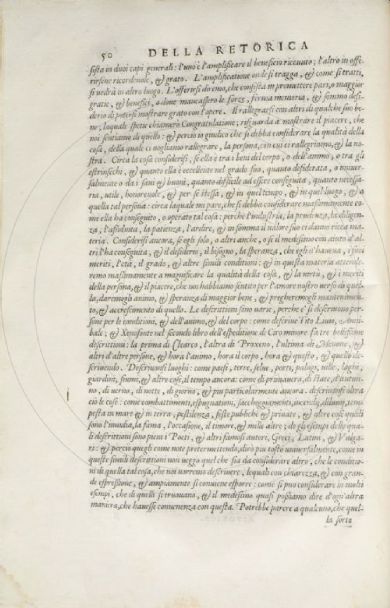 50 DELLA RETORICA
sista in duoi capi generali: l'uno è l'amplificare il beneficio riceuuto; l'altro in offe-
rirsene ricordeuole, & grato. L'amplificatione onde si tragga, & come si tratti,
si uedrà in altro luogo. L'offerirsi di uno, che consista in promettere pari, o maggior
gratie, & benefici, o doue mancassero le forze, ferma memoria, & sommo desi-
derio di potersi mostrare grato con l'opere. Il rallegrarsi con altri di qualche suo be-
ne, loquale spetie chiamerò Congratulatione; risguarda à mostrare il piacere, che
noi sentiamo di quello: & perciò in giudico che si debba considerare la qualità della
cosa, della quale ci uogliamo rallegrare, la persona, con cui ci rallegriamo, & la no-
stra. Circa la cosa considerisi, se ella è tra i beni del corpo, o dell'animo, o tra gli
estrinsechi, & quanto ella è eccellente nel grado suo, quanto desiderata, o uniuer-
salmente o da i sani & buoni, quanto difficile ad essere conseguita, quanto necessa-
ria, utile, honoreuole, & per se stessa, & in quel tempo, & in quel luogo, & a
quella tal persona: circa laquale mi pare, che si debba considerare massimamente co-
me ella ha conseguito, o operato tal cosa: perche l'industria, la prudenza, la diligen-
za, l'assiduità, la patienza, l'ardire, & in somma il ualore suo ci danno ricca ma-
teria. Considerisi ancora, se egli solo, o altri anche, o se il medesimo con aiuto d'al-
tri l'ha conseguita, & il desiderio, il bisogno, la speranza, che egli n'haueua, i suoi
meriti, l'età, il grado, & altre simili conditioni: & in questa materia attende-
remo massimamente a magnificare la qualità della cosa, & la uertù, & i meriti
della persona, & il piacere, che noi habbiamo sentito per l'amore nostro uerso di quel-
la, daremogli animo, & speranza di maggior bene, & pregheremogli mantenimen-
to, & accrescimento di quello. Le descrittioni sono uarie, perche è si descriuono per-
sone per le conditioni, & dell'animo, & del corpo: come descriue Tito Liuio, Anni-
bale; & Xenofonte nel secondo libro dell'espeditione di Ciro minore fa tre bellissime
descrittioni: la prima di Clearco, l'altra di Proxeno, l'ultima di Menone, &
altri d'altre persone, & hora l'animo, hora il corpo, hora & questo, & quello de-
scriuendo. Descriuonsi luoghi: come paesi, terre, selue, porti, palagi, uille, loghi,
giardini, fiumi, & altre cose, il tempo ancora: come di primauera, di state, d'autun-
no, di uerno, di notte, di giorno, & piu particolarmente ancora. descriuonsi oltra
ciò le cose: come combattimenti, espugnationi, saccheggiamenti, incendij, diluuij, tem-
pesta in mare & in terra, pestilenza, feste publiche & priuate, & altre cose: quali
sono l'inuidia, la fama, l'occasione, il timore, & mille altre: de gli esempi delle qua-
li descrittioni sono pieni i Poeti, & altri famosi autori, Greci, Latini, & Vulga-
ri: & perciò quegli come note pretermettendo, dirò piu tosto uniuersalmente, come in
queste simili descrittioni non ueggo quel che sia da considerare altro, che le conditio-
ni di quella tal cosa, che noi uorremo descriuere, lequali con chiarezza, & con gran-
de espressione, & ampiamente si conuiene esporre: come si può considerare in molti
esempi, che di quelli si truouano, & il medesimo quasi possiamo dire d'ogni altra
maniera, che hauesse conuenenza con questa. Potrebbe parere a qualcuno, che quel-
la sorte